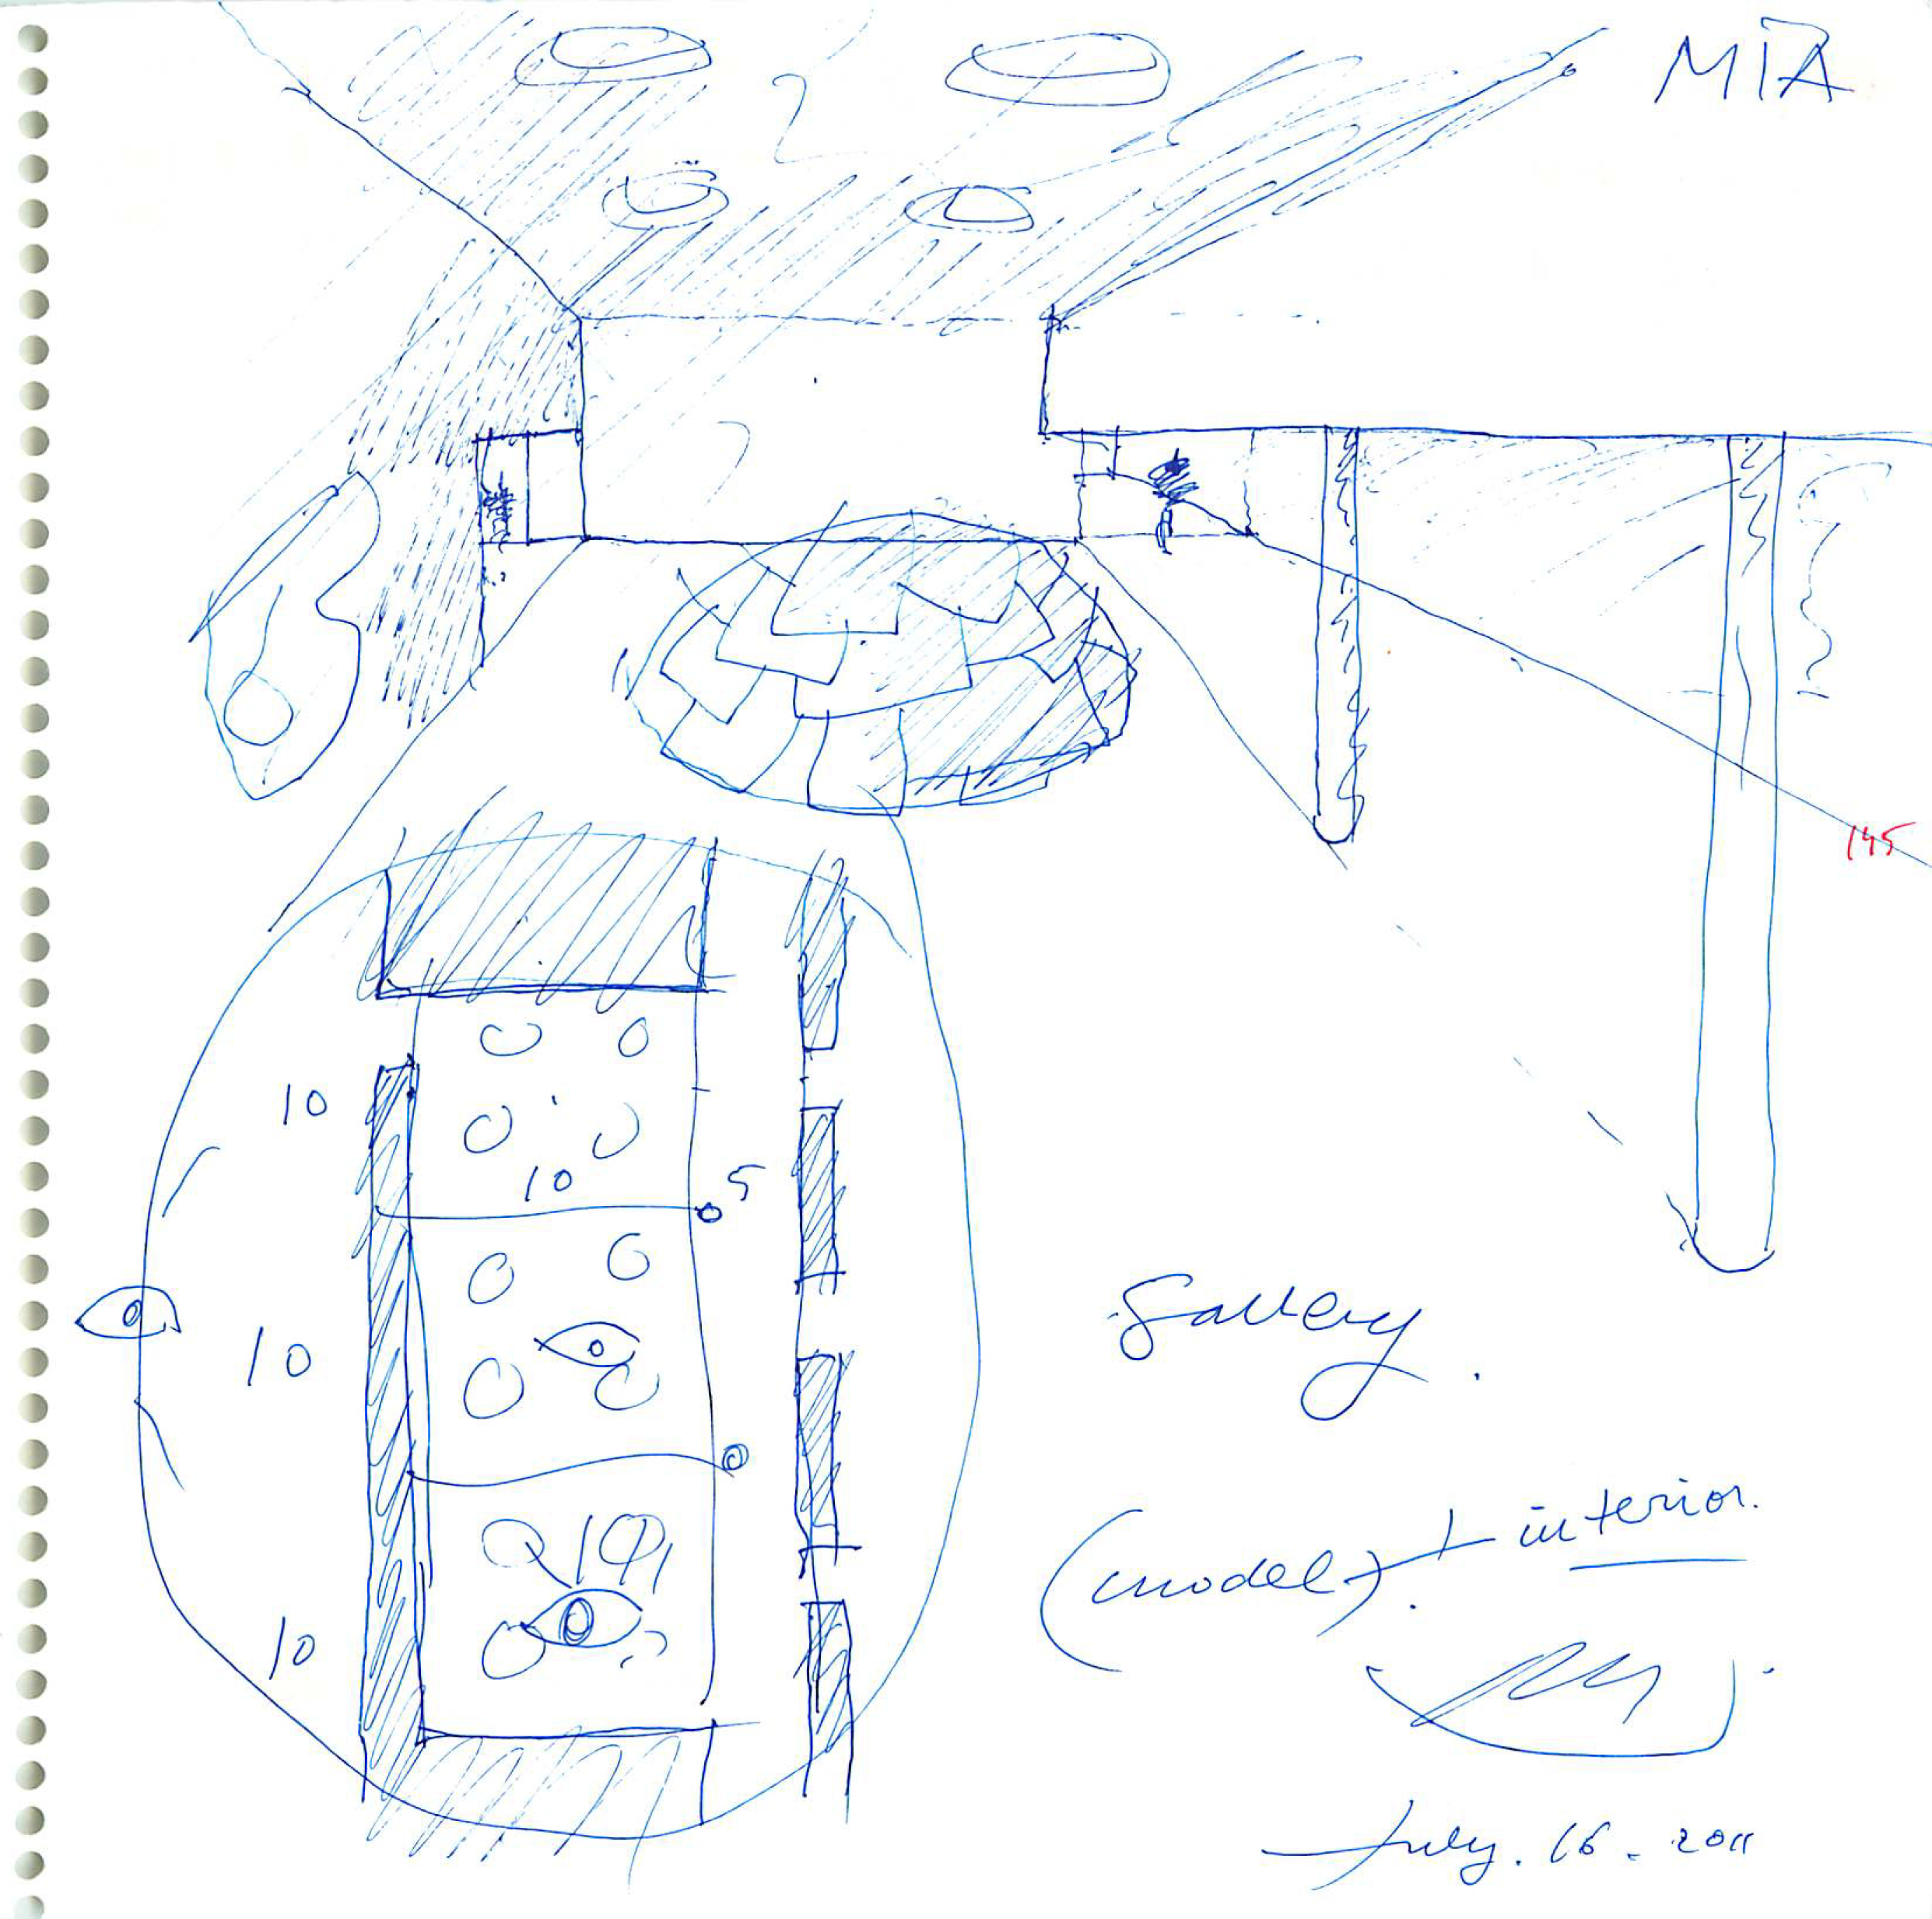 MIA
145
10
10
5
10
10
Gallery.
(model) + interior.
July. 16. 2011